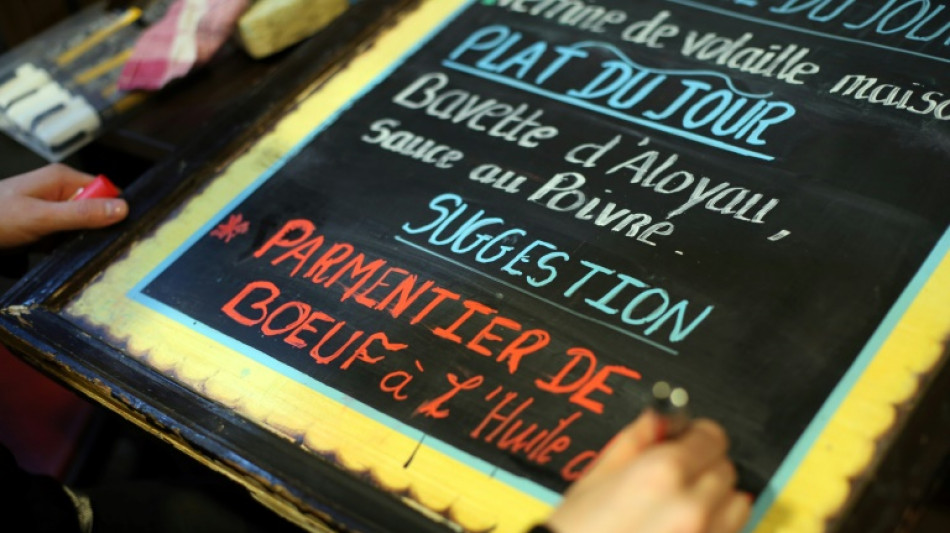 DU JOUR
Terrine de volaille maison
PLAT DU JOUR
Bavette d'Aloyau,
sauce au Poivre.
SUGGESTION
* PARMENTIER DE
BOEUF à L'Huile